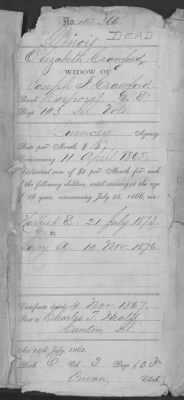 No. 102,366.
Illinois
DEAD
Elizabeth Crawford,
WIDOW OF
Joseph J. Crawford
Rank Corporal Co. E.
Regt. 103 Ill. Vols.
Quincy Agency
Rate per Month $8,
Commencing 11 April 1865.
Additional sum of $2 per Month for each
of the following children, until arriving at the age
of 16 years, commencing July 25, 1866, viz:
Harriet E. 21 July 1873.
Lucy A. 10 Nov. 1876.
Certificate dated 4 Nov 1867.
Sent to Charles T. Heald
Canton Ill.
Act 14th July, 1862.
Book C Vol. 3 Page 60
Clerk.